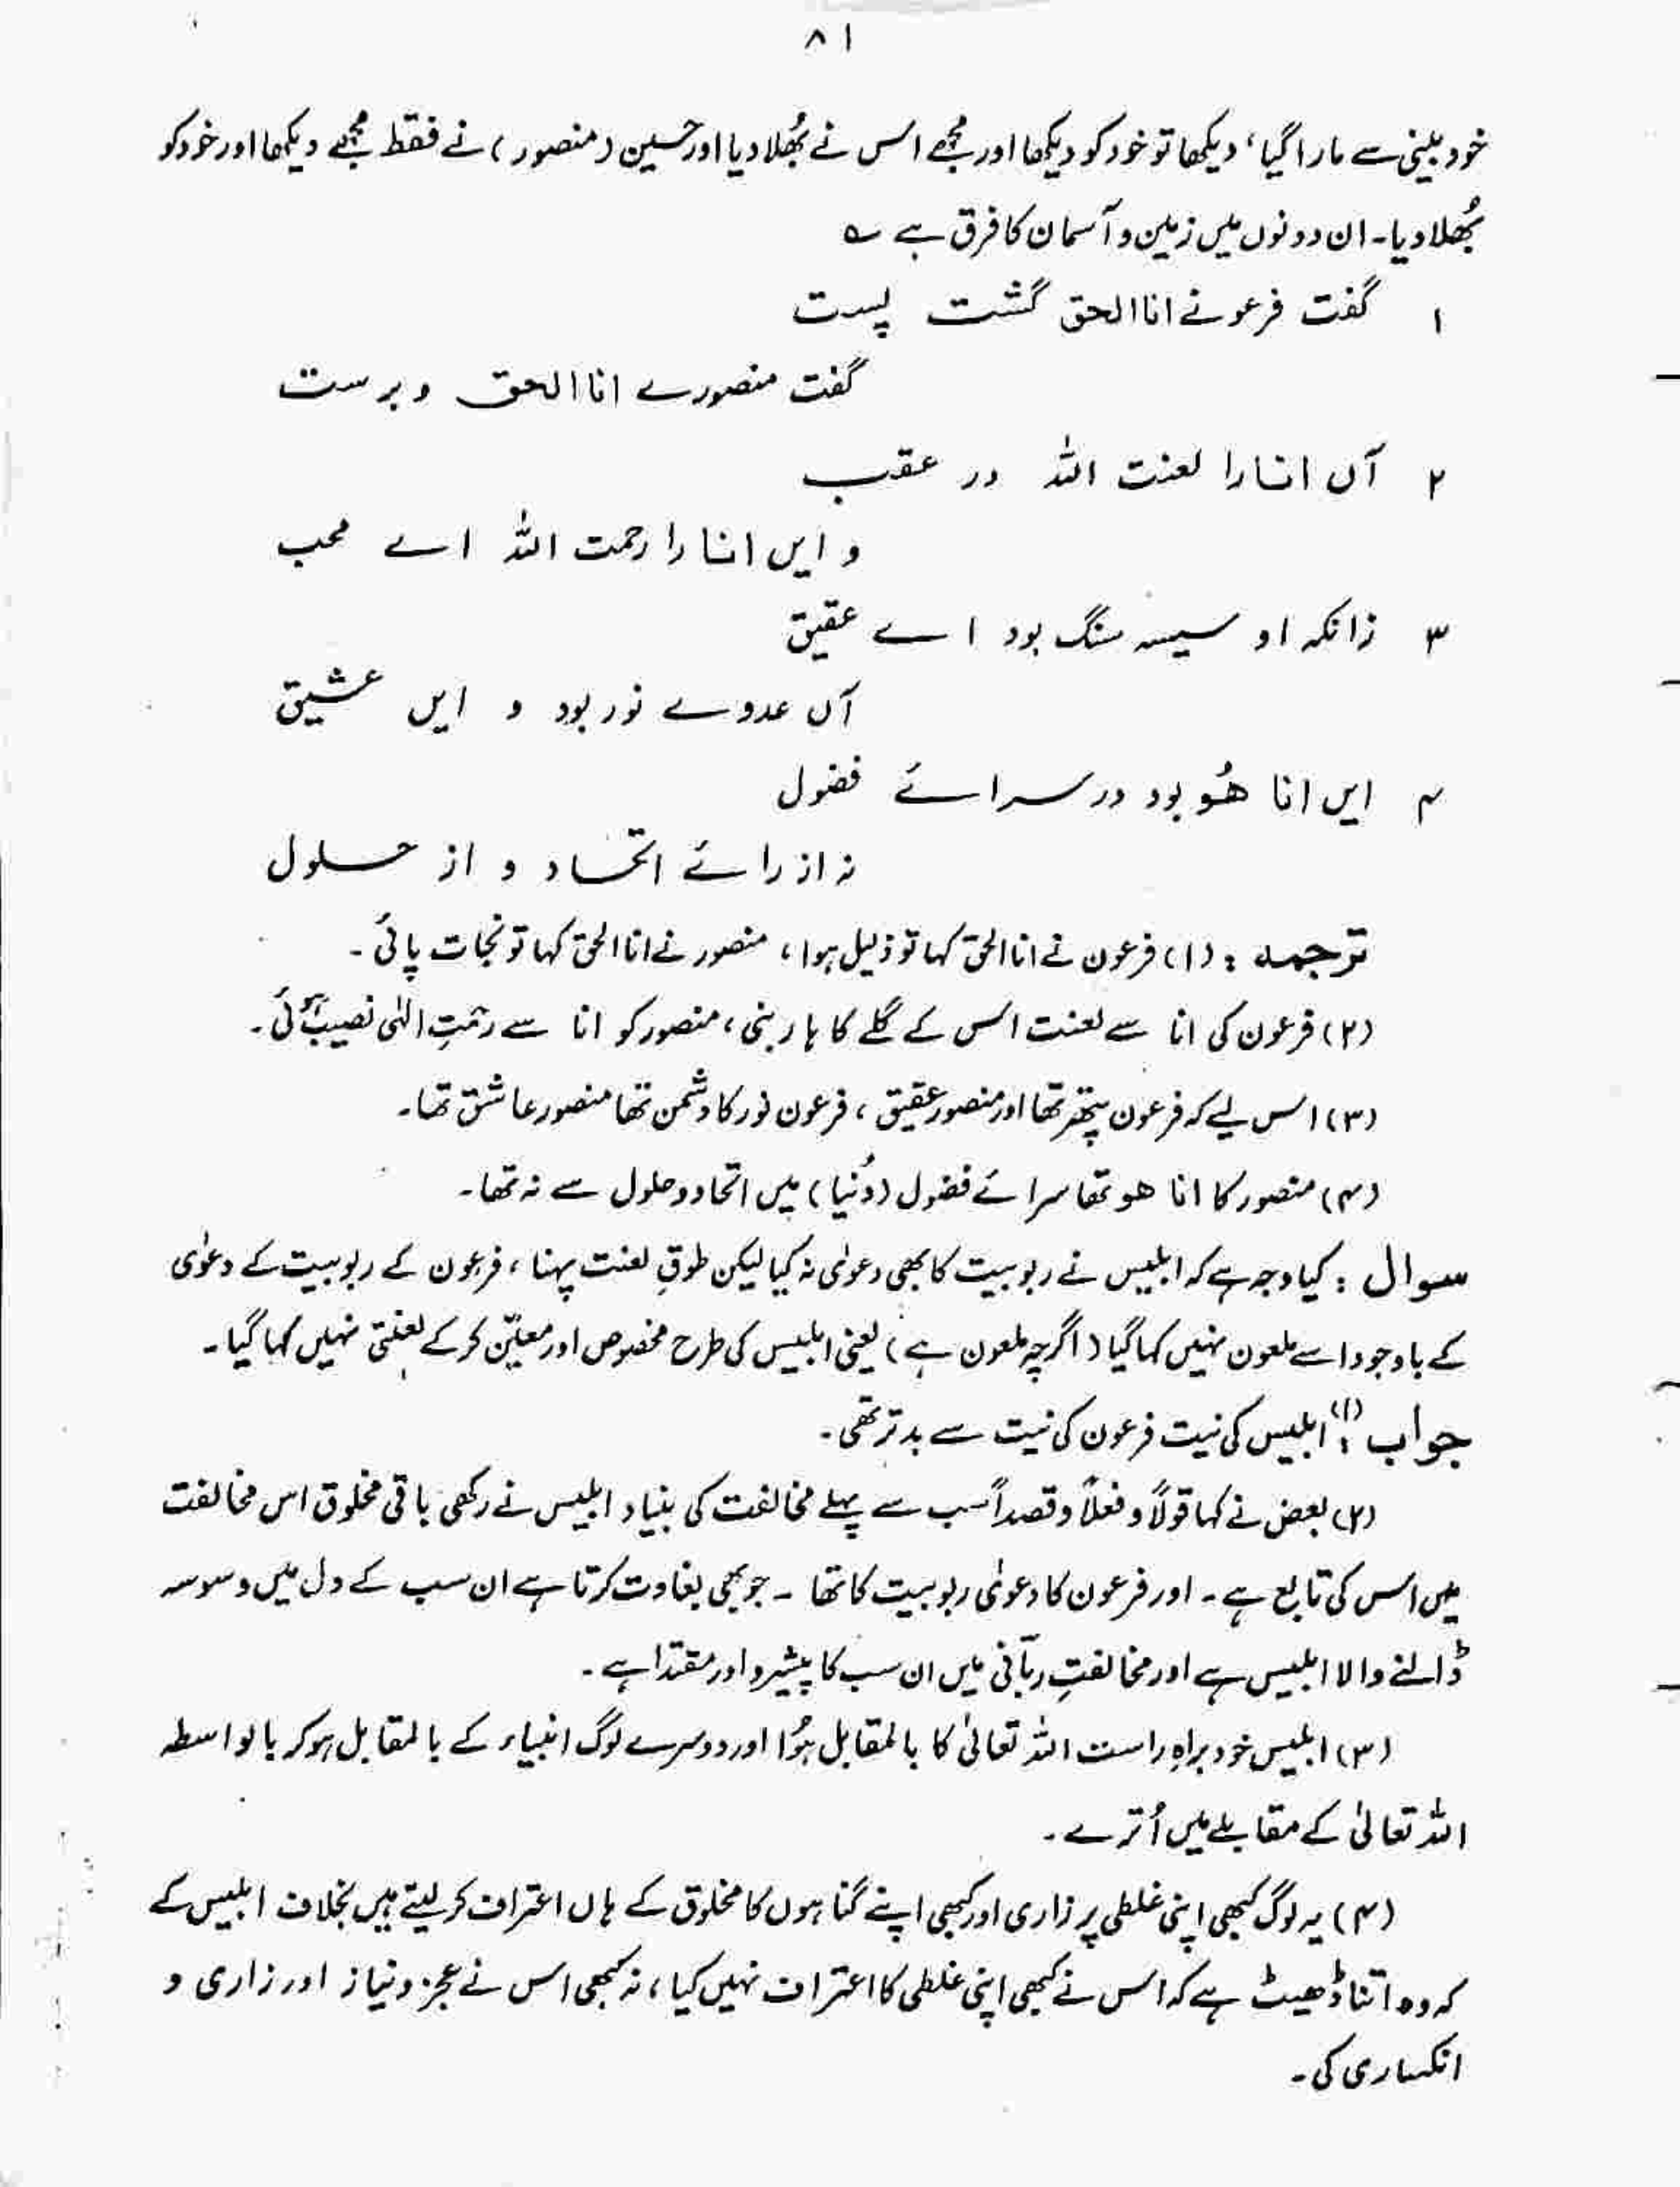 ۸۱
خود بینی سے مارا گیا، دیکھا تو خود کو دیکھا اور مجھے اس نے بُھلا دیا اور حسین (منصور) نے فقط مجھے دیکھا اور خود کو
بُھلا دیا۔ ان دونوں میں زمین و آسمان کا فرق ہے ؎
۱ گفت فرعونے انا الحق گشت پست
گفت منصورے انا الحق و برست
۲ آں انا را لعنت اللہ در عقب
و ایں انا را رحمت اللہ اے محب
۳ زانکہ او سیہ سنگ بود اے عقیق
آں عدوے نور بود و ایں عشیق
۴ ایں انا ھُو بود در سرائے فضول
نہ از رائے اتحاد و از حلول
ترجمہ : (۱) فرعون نے انا الحق کہا تو ذلیل ہوا، منصور نے انا الحق کہا تو نجات پائی۔
(۲) فرعون کی انا سے لعنت اس کے گلے کا ہار بنی، منصور کو انا سے رحمتِ الٰہی نصیب ہوئی۔
(۳) اس لیے کہ فرعون پتھر تھا اور منصور عقیق، فرعون نور کا دشمن تھا منصور عاشق تھا۔
(۴) منصور کا انا ھو تھا سرائے فضول (دُنیا) میں اتحاد و حلول سے نہ تھا۔
سوال : کیا وجہ ہے کہ ابلیس نے ربوبیت کا بھی دعوٰی نہ کیا لیکن طوقِ لعنت پہنا، فرعون کے ربوبیت کے دعوٰی
کے باوجود اسے ملعون نہیں کہا گیا (اگرچہ ملعون ہے) یعنی ابلیس کی طرح مخصوص اور معیّن کر کے لعنتی نہیں کہا گیا۔
جواب : (۱) ابلیس کی نیت فرعون کی نیت سے بدتر تھی۔
(۲) بعض نے کہا قولاً و فعلاً و قصداً سب سے پہلے مخالفت کی بنیاد ابلیس نے رکھی باقی مخلوق اس مخالفت
میں اس کی تابع ہے۔ اور فرعون کا دعوٰی ربوبیت کا تھا ۔ جو بھی بغاوت کرتا ہے ان سب کے دل میں وسوسہ
ڈالنے والا ابلیس ہے اور مخالفتِ ربّانی میں ان سب کا پیشرو اور مقتدا ہے۔
(۳) ابلیس خود براہِ راست اللہ تعالیٰ کا بالمقابل ہُوا اور دوسرے لوگ انبیاء کے بالمقابل ہو کر بالواسطہ
اللہ تعالیٰ کے مقابلے میں اُترے۔
(۴) یہ لوگ کبھی اپنی غلطی پر زاری اور کبھی اپنے گناہوں کا مخلوق کے ہاں اعتراف کر لیتے ہیں بخلاف ابلیس کے
کہ وہ اتنا ڈھیٹ ہے کہ اس نے کبھی اپنی غلطی کا اعتراف نہیں کیا، نہ کبھی اس نے عجز و نیاز اور زاری و
انکساری کی۔